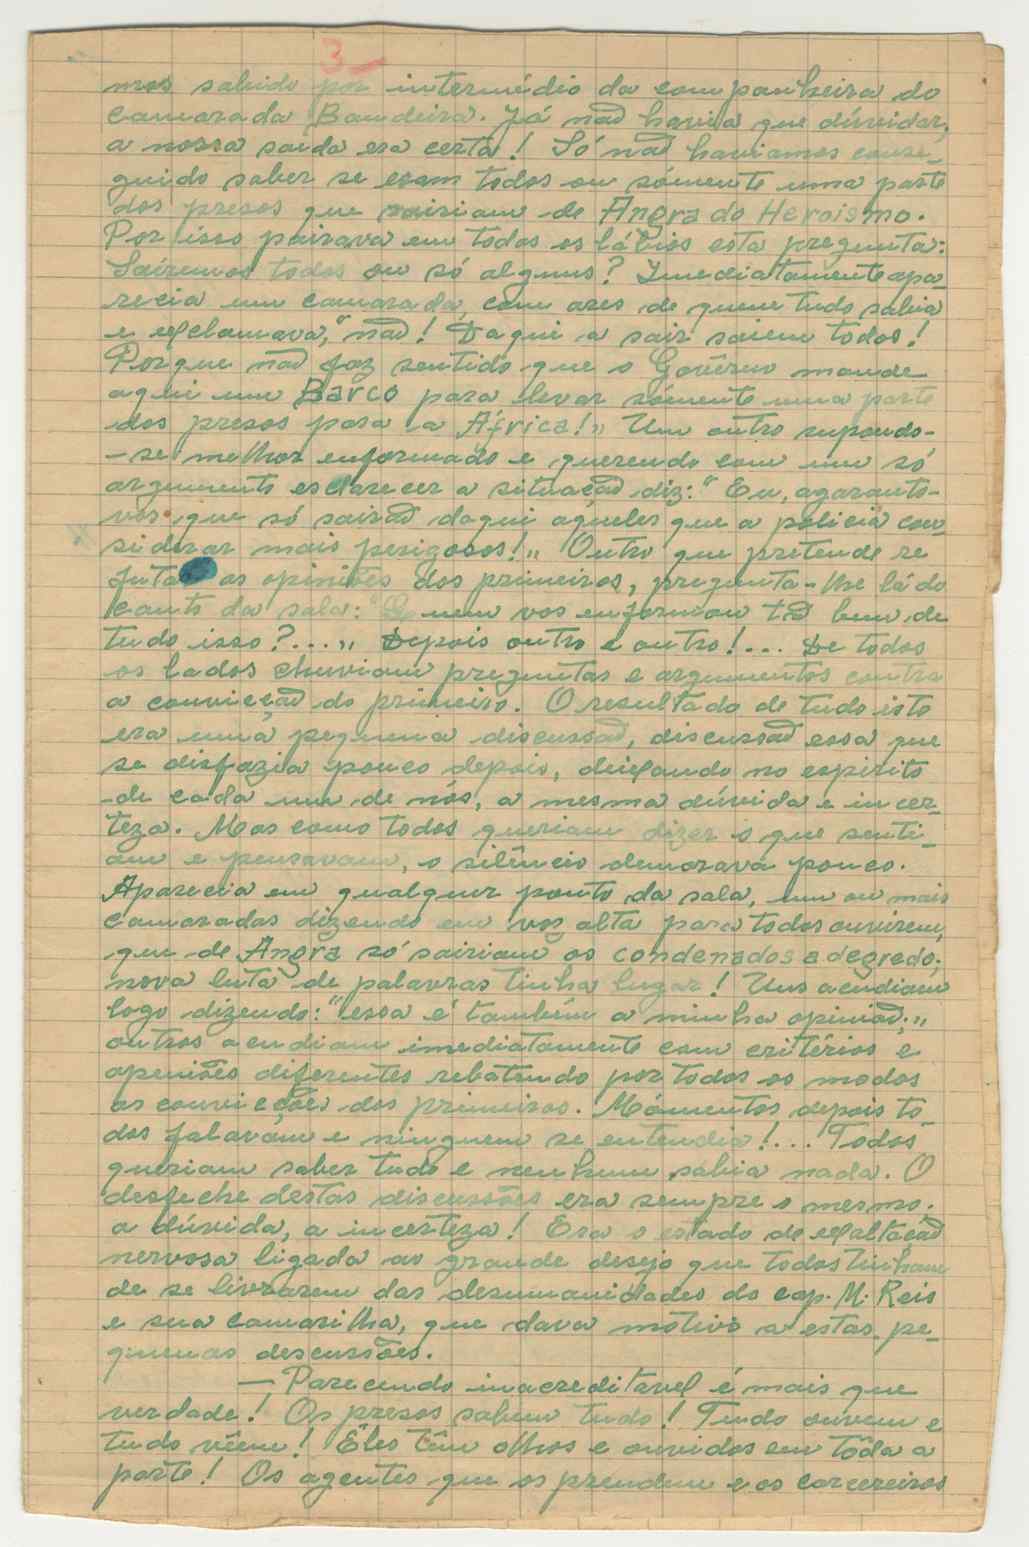 3
mos sabido por intermédio da companheira do
camarada Bandeira. Já não havia que dúvidar,
a nossa saida era certa! Só não haviamos conse-
guido saber se eram todos ou sómente uma parte
dos presos que sairiam de Angra do Heroismo.
Por isso pairava em todos os lábios esta pregunta:
Sairemos todos ou só alguns? Imediatamente apa
recia um camarada, com ares de quem tudo sabia
e esclamava, "não! Daqui a sair saiem todos!
Porque não faz sentido que o Govêrno mande
aqui um Barco para levar sómente uma parte
dos presos para a África!" Um outro supondo-
-se melhor enformado e querendo com um só
argumento esclarecer a situação diz: "Eu, agaranto-
vos que só sairão daqui aqueles que a policia con
siderar mais perigosos!" Outro que pretende re
futar as opiniões dos primeiros, pregunta-lhe lá do
canto da sala: "Quem vos enformou tão bem de
tudo isso?..." Depois outro e outro!... De todos
os lados chuviam preguntas e argumentos contra
a convicção do primeiro. O resultado de tudo isto
era uma pequena discussão, discussão essa que
se disfazia pouco depois, deixando no espirito
de cada um de nós, a mesma dúvida e incer-
teza. Mas como todos queriam dizer o que senti-
am e pensavam, o silêncio demorava pouco.
Aparecia em qualquer ponto da sala, um ou mais
camaradas dizendo em voz alta para todos ouvirem,
que de Angra só sairiam os condenados a degredo;
nova luta de palavras tinha lugar! Uns acudiam
logo dizendo: "essa é também a minha opinião;"
outros acudiam imediatamente com critérios e
openiões diferentes rebatendo por todos os modos
as convicções dos primeiros. Mómentos depois to
dos falavam e ninguem se entendia!... Todos
queriam saber tudo e nenhum sabia nada. O
desfeche destas discussões era sempre o mesmo.
a dúvida, a incerteza! Era o estado de exaltação
nervosa ligada ao grande desejo que todos tinham
de se livrarem das desumanidades do cap. M. Reis
e sua camarilha, que dava motivo a estas pe-
quenas descussões.
— Parecendo inacreditavel é mais que
verdade! Os presos sabem tudo! Tudo ouvem e
tudo vêem! Êles têm olhos e ouvidos em tôda a
parte! Os agentes que os prendem e os carcereiros